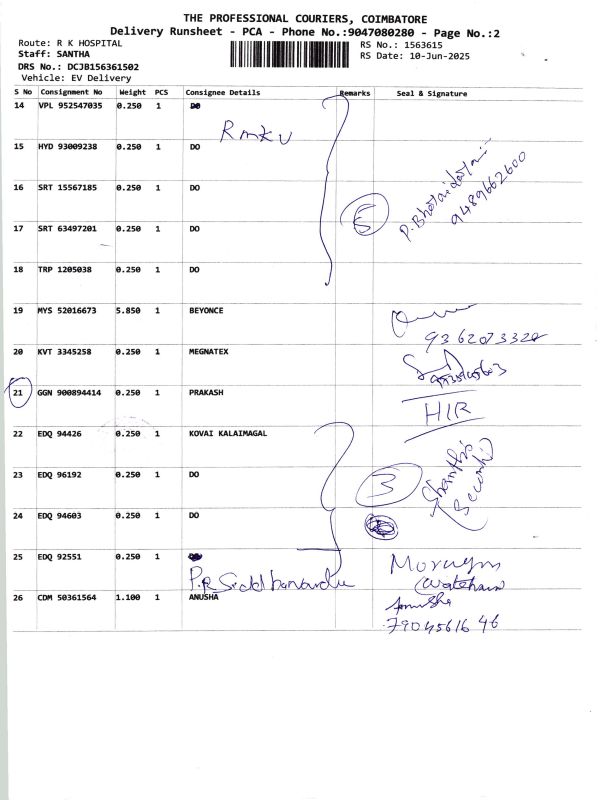 THE PROFESSIONAL COURIERS, COIMBATORE
Delivery Runsheet - PCA - Phone No.:9047080280 - Page No.:2
Route: R K HOSPITAL
Staff: SANTHA
DRS No.: DCJB156361502
Vehicle: EV Delivery
RS No.: 1563615
RS Date: 10-Jun-2025
S No Consignment No Weight PCS Consignee Details Remarks Seal & Signature
14 VPL 952547035 0.250 1 DO
Rmkv
15 HYD 93009238 0.250 1 DO
16 SRT 15567185 0.250 1 DO
5
9489662600
17 SRT 63497201 0.250 1 DO
18 TRP 1205038 0.250 1 DO
19 MYS 52016673 5.850 1 BEYONCE
20 KVT 3345258 0.250 1 MEGNATEX
21 GGN 900894414 0.250 1 PRAKASH
HIR
22 EDQ 94426 0.250 1 KOVAI KALAIMAGAL
23 EDQ 96192 0.250 1 DO
3
24 EDQ 94603 0.250 1 DO
25 EDQ 92551 0.250 1
26 CDM 50361564 1.100 1 ANUSHA
Anusha
7904561646